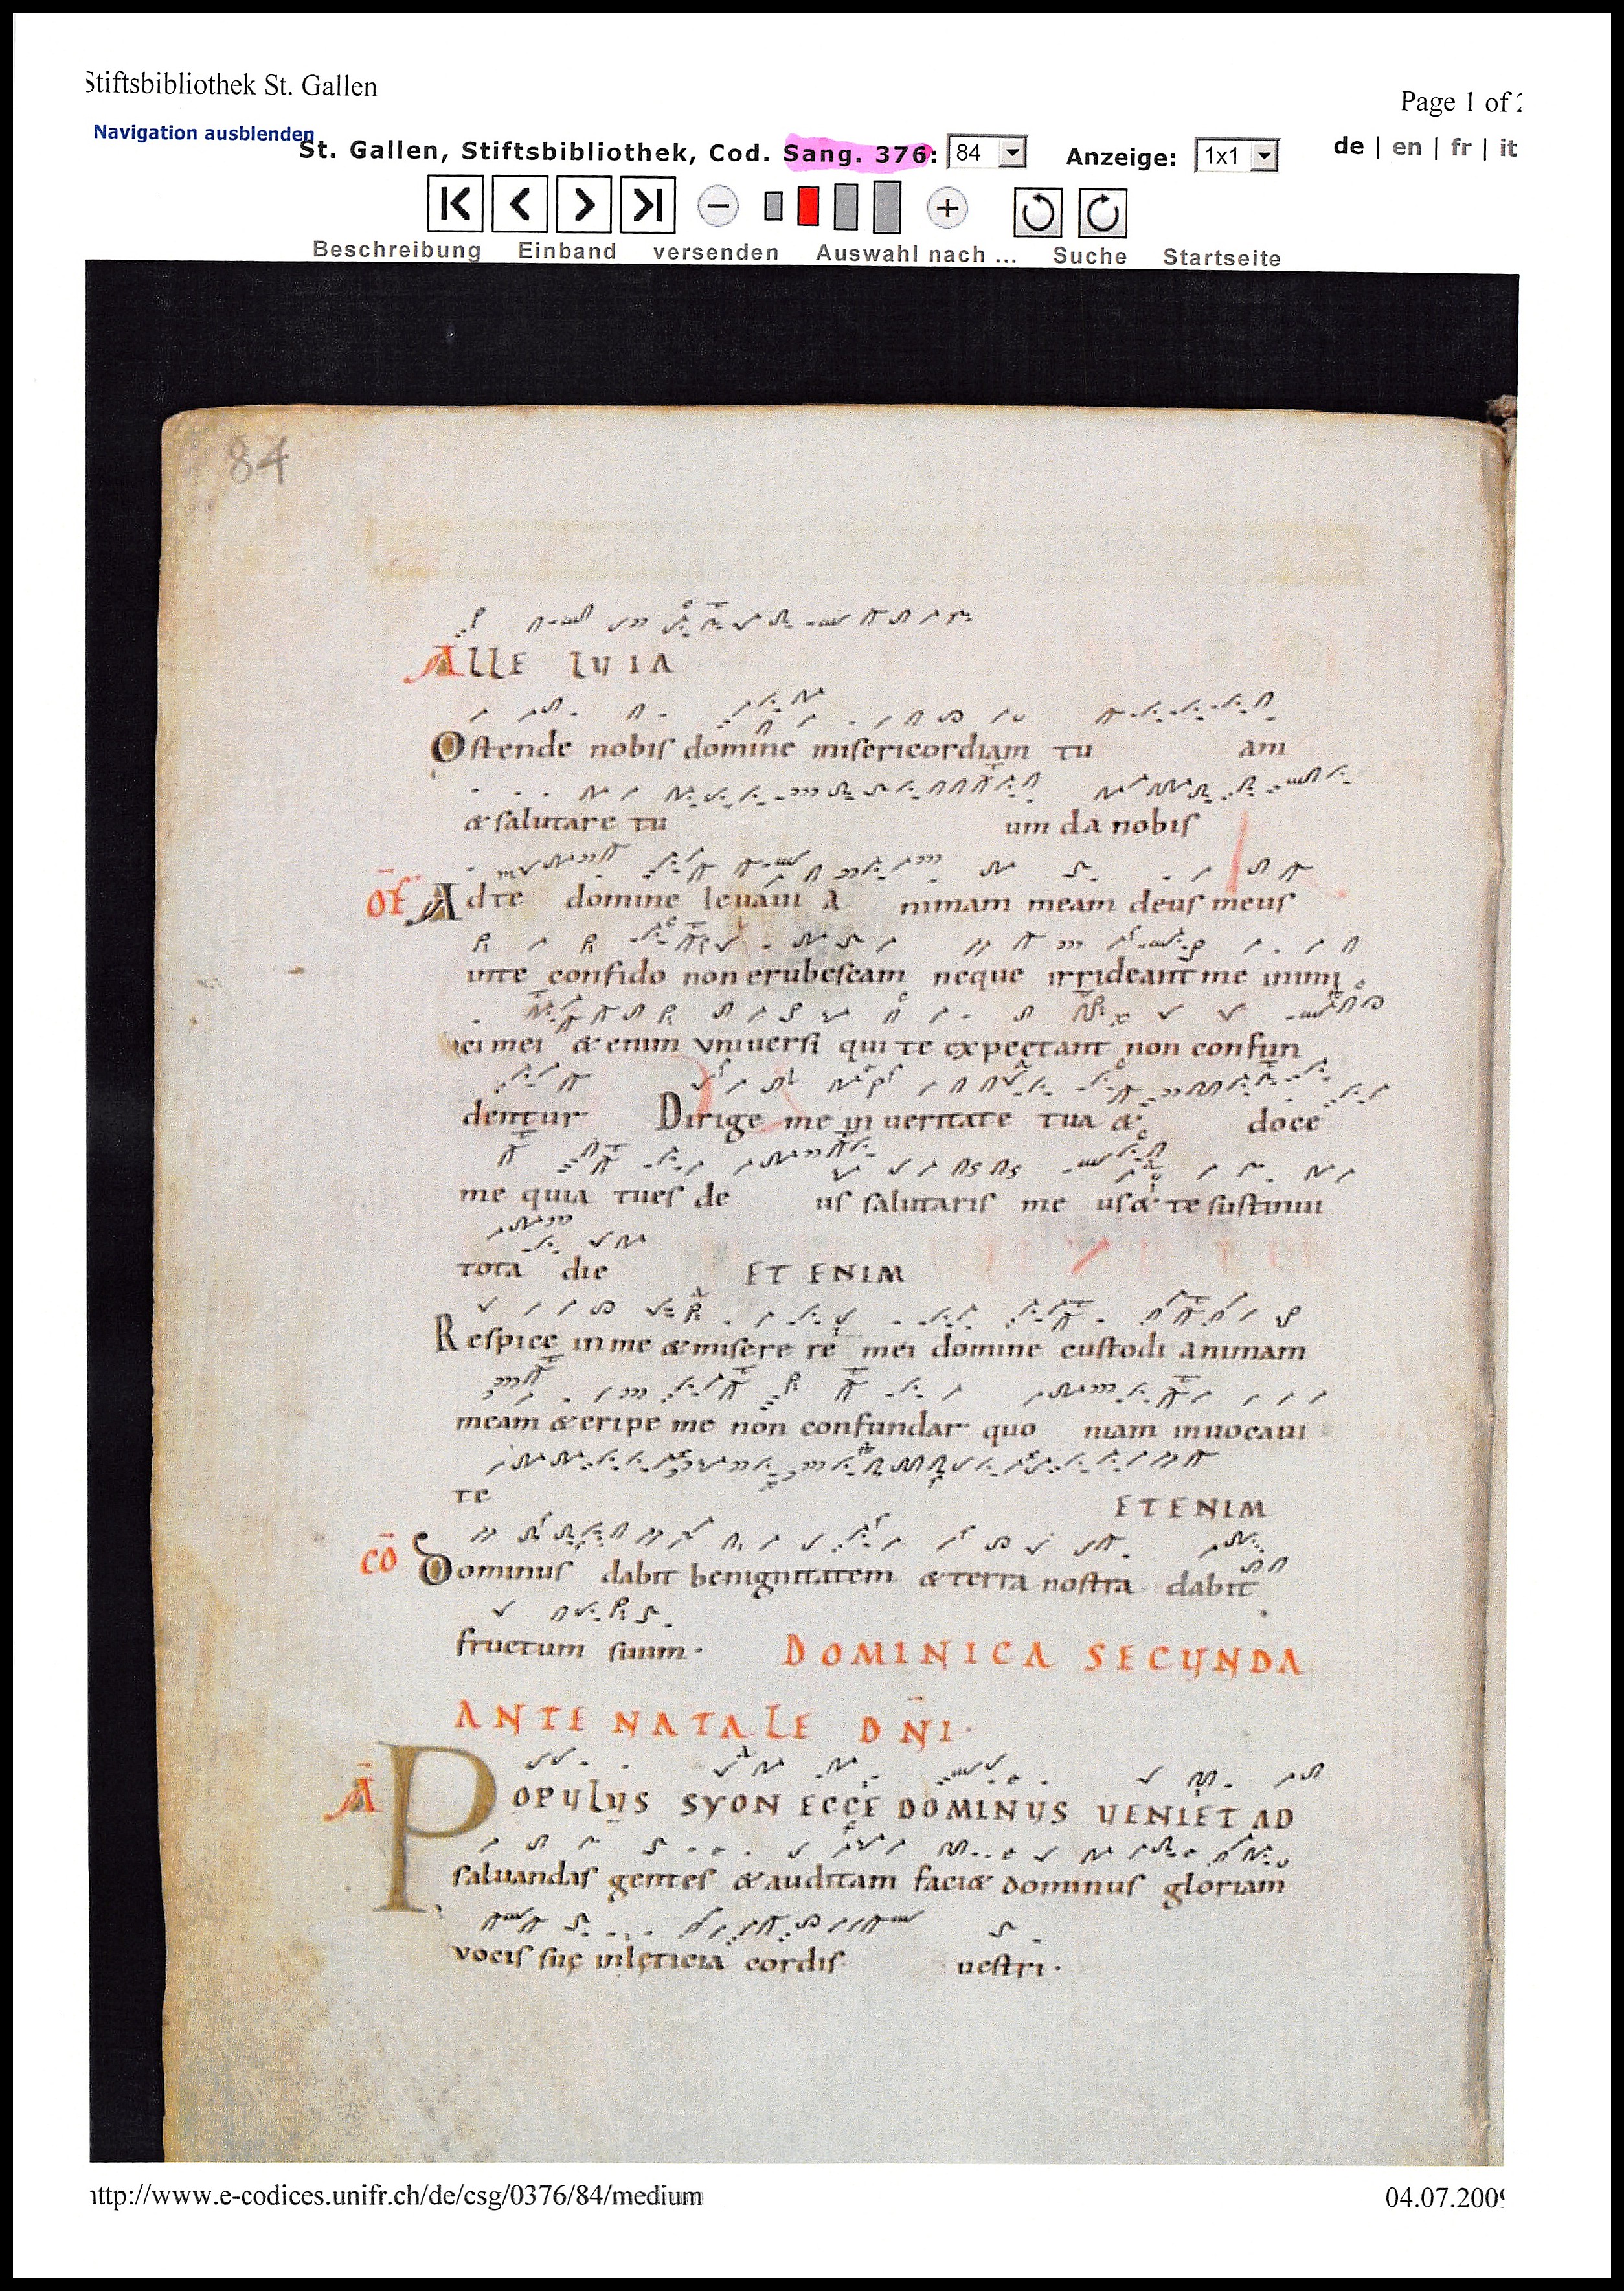 Stiftsbibliothek St. Gallen
Page 1 of 2
Navigation ausblenden
St. Gallen, Stiftsbibliothek, Cod. Sang. 376: 84 Anzeige: 1x1
de | en | fr | it
Beschreibung Einband versenden Auswahl nach ... Suche Startseite
84
ALLE LUIA
Ostende nobis domine misericordiam tu am
& salutare tu um da nobis
OF Ad te domine levavi a nimam meam deus meus
in te confido non erubescam neque irrideant me inimi
ci mei & enim universi qui te expectant non confun
dentur Dirige me in veritate tua & doce
me quia tu es de us salutaris me us & te sustinui
tota die ET ENIM
Respice in me & misere re mei domine custodi animam
meam & eripe me non confundar quo niam invocavi
te ET ENIM
CŌ Dominus dabit benignitatem & terra nostra dabit
fructum suum.
DOMINICA SECUNDA
ANTE NATALE DN̄I.
Ā POPULUS SYON ECCE DOMINUS UENIET AD
saluandas gentes & auditam faci& dominus gloriam
vocis suę in lęticia cordis uestri.
http://www.e-codices.unifr.ch/de/csg/0376/84/medium
04.07.2009